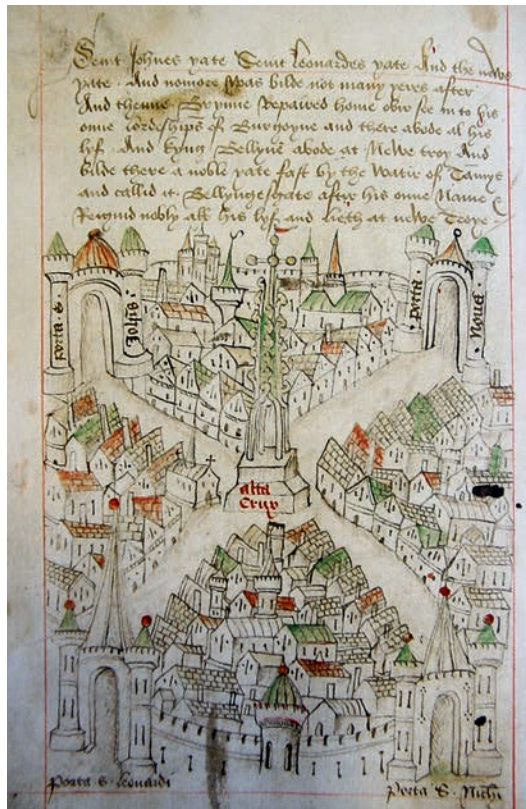 Seint Johnes yate Seint Leonardes yate And the newe
yate . And nomore was bilde not many yeres after
And thenne Brynne repaired home ovir see in to his
onne lordeships of Burgoyne and there abode al his
lyf . And kyng Bellyne abode at Newe troy And
bilde there a noble yate fast by the Watir of Tamys
and callid it . Bellyngesgate after his onne Name &
Reignid nobly all his lyf and lieth at newe Troye .
Porta S .
Joh̄is .
Porta .
Nova
alta
Crux
Porta S . Leonardi
Porta S . Nichi